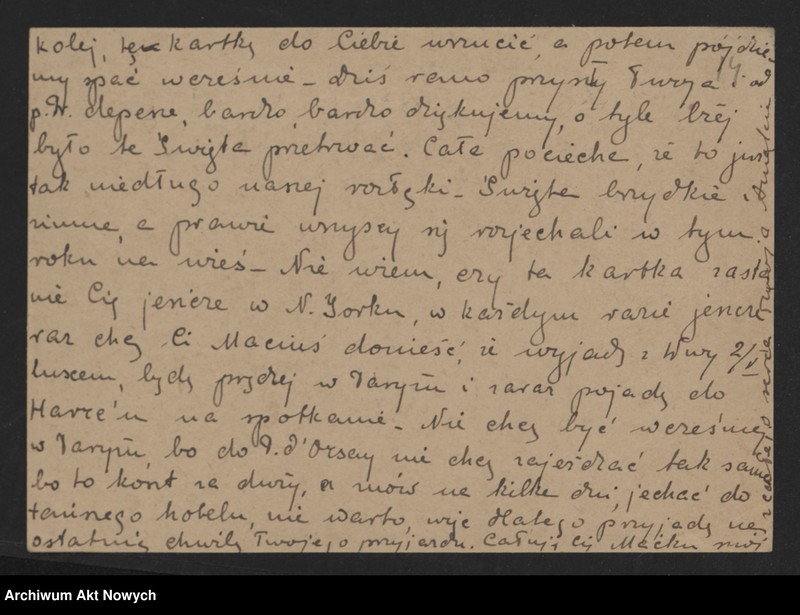 kolej, tę kartkę do Ciebie wrzucić, a potem pójdzie-
my spać wcześnie - dziś rano przyszły Twoja i od
p. W. depesze, bardzo, bardzo dziękujemy, o tyle lżej
było te Święta przetrwać. Cała pociecha, że to już
tak niedługo naszej rozłąki - Święta brzydkie i
zimne, a prawie wszyscy się rozjechali w tym
roku na wieś - Nie wiem, czy ta kartka zasta-
nie Cię jeszcze w N. Yorku, w każdym razie jeszcze
raz chcę Ci Maciuś donieść, że wyjadę z Wwy 2/V
luxem, będę prędzej w Paryżu i zaraz pojadę do
Havre'u na spotkanie - Nie chcę być wcześniej
w Paryżu, bo do P. d'Orsay nie chcę zajeżdżać tak sama
bo to koszt za duży, a znów na kilka dni, jechać do
tańszego hotelu, nie warto, więc dlatego przyjadę na
ostatnią chwilę Twojego przyjazdu. Całuję Cię Maćku mój
z całego serca Twoja
Archiwum Akt Nowych